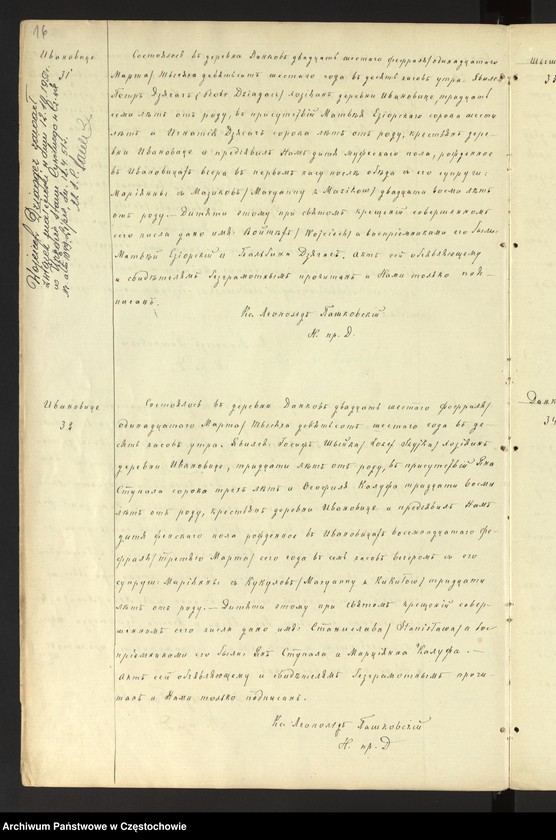 16
Ивановице
31.
Состоялось въ деревни Данковъ двадцать шестаго февраля/одинадцатаго
Марта/ тысяча девятьсотъ шестаго года въ десять часовъ утра. Явился
Петръ Дзягачъ (Piotr Dziagacz) хозяинъ деревни Ивановице, тридцать
семи лѣтъ отъ роду, въ присутствіи Матвѣя Езіорскаго сорока шести
лѣтъ и Игнатія Дзягачъ сорока лѣтъ отъ роду, крестьянъ дере-
вни Ивановице и предъявилъ Намъ дитя мужескаго пола, рожденное
въ Ивановицахъ вчера въ первомъ часу послѣ обѣда съ его супруги:
Маріянны съ Мазиковъ/Maryanny z Mazików/ двадцати восми лѣтъ
отъ роду. Дитяти этому при святомъ крещеніи совершенномъ
сего числа дано имя: Войтѣхъ/Wojciech/ а воспріемниками его были:
Матвѣй Езіорскій и Бальбина Дзягачъ. Актъ сей объявляющему
и свидѣтелямъ безграмотнымъ прочитанъ и Нами только под-
писанъ.
Кс. Леопольдъ Пашковскій
Н. пр. Д.
Ивановице
32
Состоялось въ деревни Данковъ двадцать шестаго февраля/
одинадцатаго Марта/ тысяча девятьсотъ шестаго года въ де-
сять часовъ утра. Явился: Іосифъ Шыйка/Józef Szyjka/ хозяинъ
деревни Ивановице, тридцати лѣтъ отъ роду, въ присутствіи Яна
Ступала сорока трехъ лѣтъ и Ѳеофиля Калуфа тридцати восми
лѣтъ отъ роду, крестьянъ деревни Ивановице и предъявилъ Намъ
дитя женскаго пола рожденное въ Ивановицахъ восемнадцатаго фе-
враля/третьяго Марта/ сего года въ семь часовъ вечеромъ съ его
супруги: Маріянны съ Кукуловъ/Maryanny z Kukułów/ тридцати
лѣтъ отъ роду. — Дитяти этому при святомъ крещеніи совер-
шенномъ сего числа дано имя: Станислава/Stanisława/ а вос-
пріемниками его были: Янъ Ступала и Марціянна Калуфа. —
Актъ сей объявляющему и свидѣтелямъ безграмотнымъ прочи-
танъ и Нами только подписанъ.
Кс. Леопольдъ Пашковскій
Н. пр. Д
Данк
Archiwum Państwowe w Częstochowie